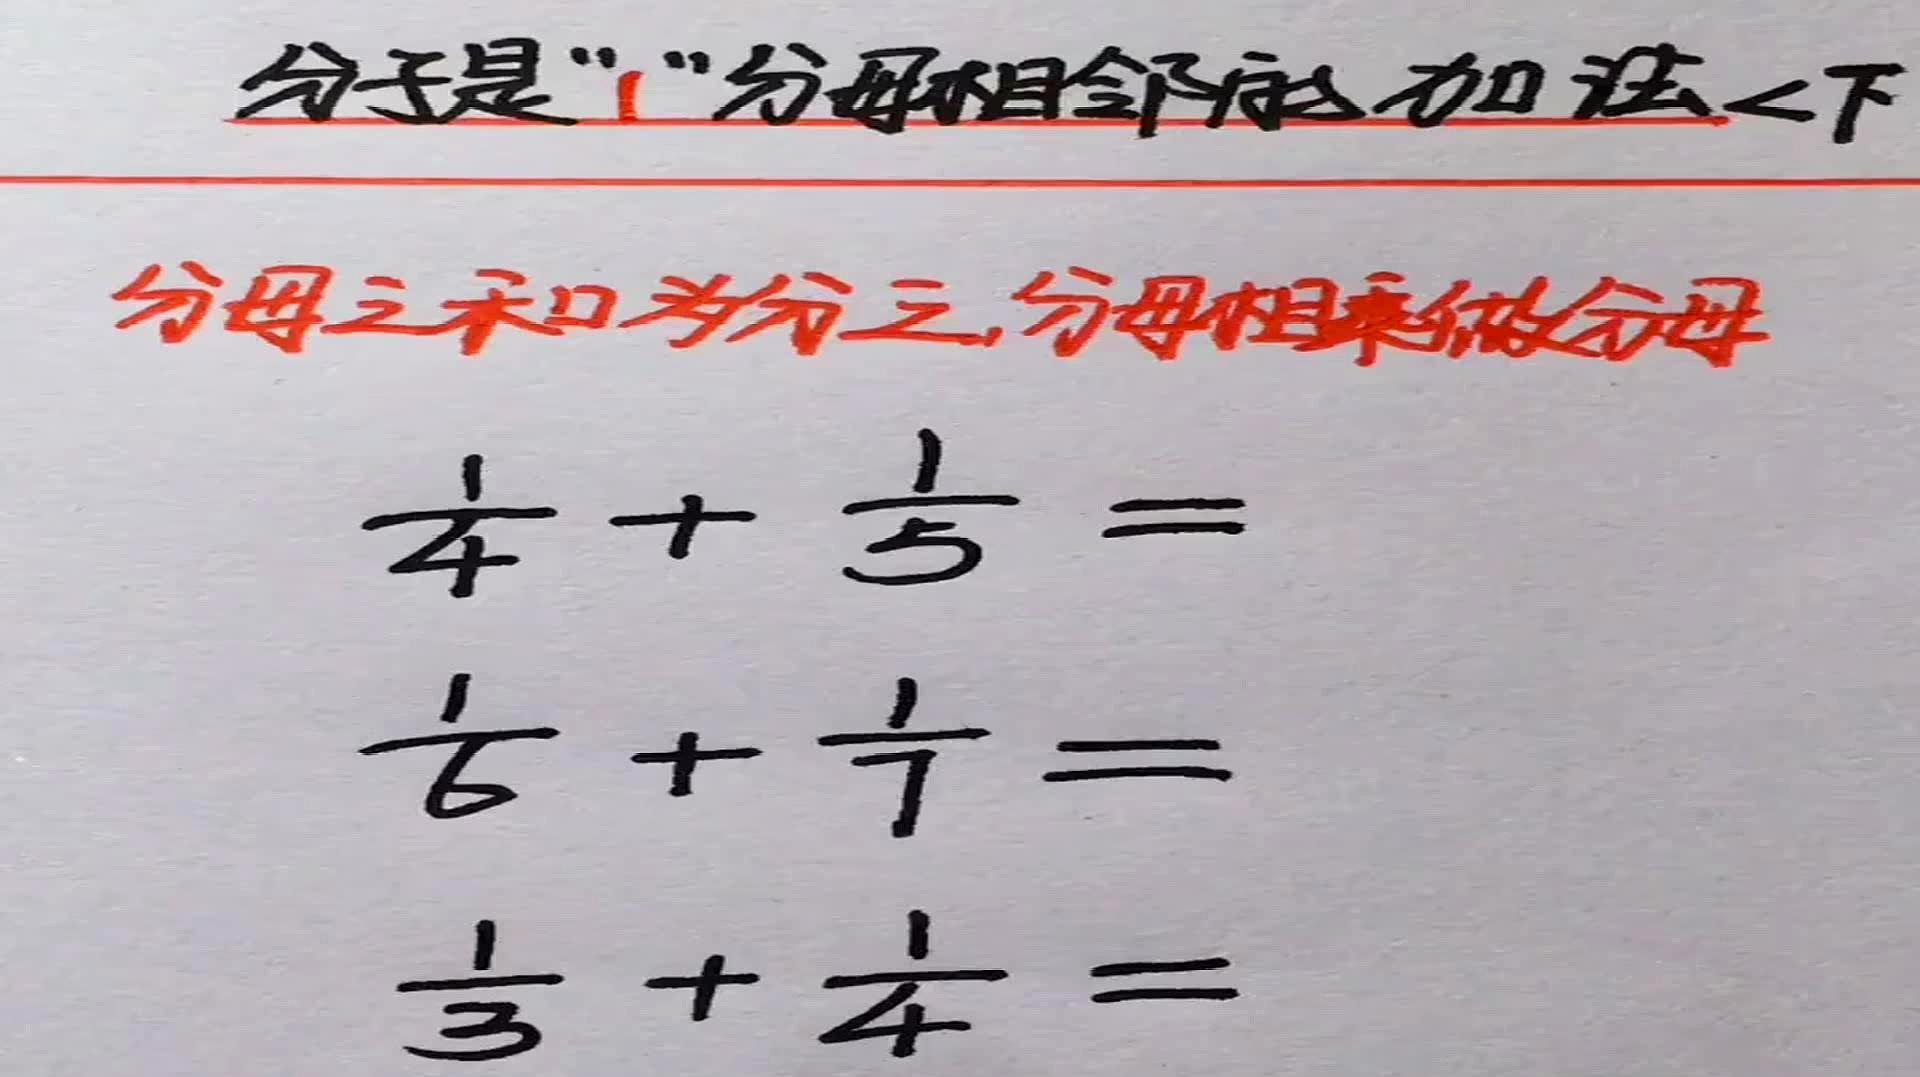 分子是“1”分母相邻的加法<下
分母之和为分之,分母相乘做分母
1/4 + 1/5 =
1/6 + 1/7 =
1/3 + 1/4 =